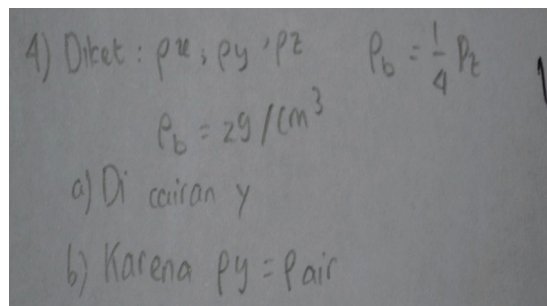 4) Diket : ρx, ρy, ρz ρb = 1/4 ρz
ρb = 2g/cm³
a) Di cairan y
b) Karena ρy = ρair